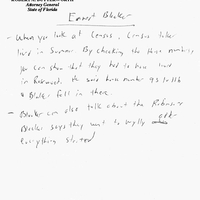 Attorney General
State of Florida
Ernest Blocker
- When you look at Census, Census taker
lived in Sumner. By checking the house numbers,
you can show that they had to have lived
in Rosewood. He said house number 95 to 116
& Blocker fell in there.
- Blocker can also talk about the Robinson
Blocker says they went to Wylly after
everything started